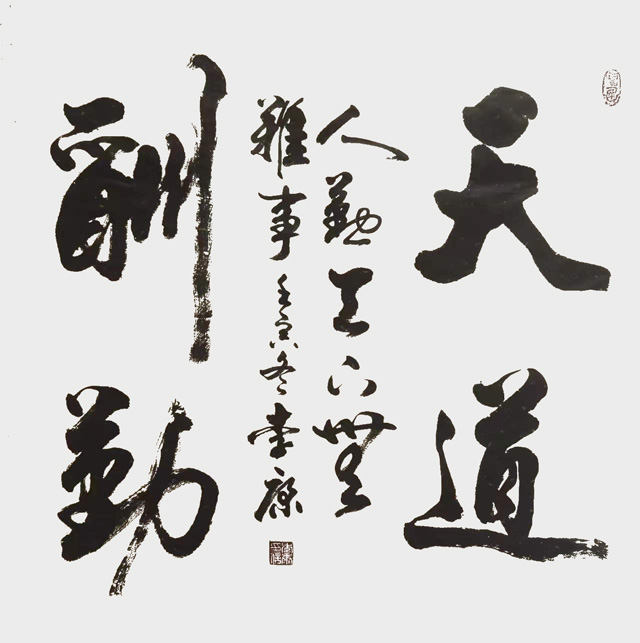 天道
酬勤
人勤天下無
難事壬寅冬李康